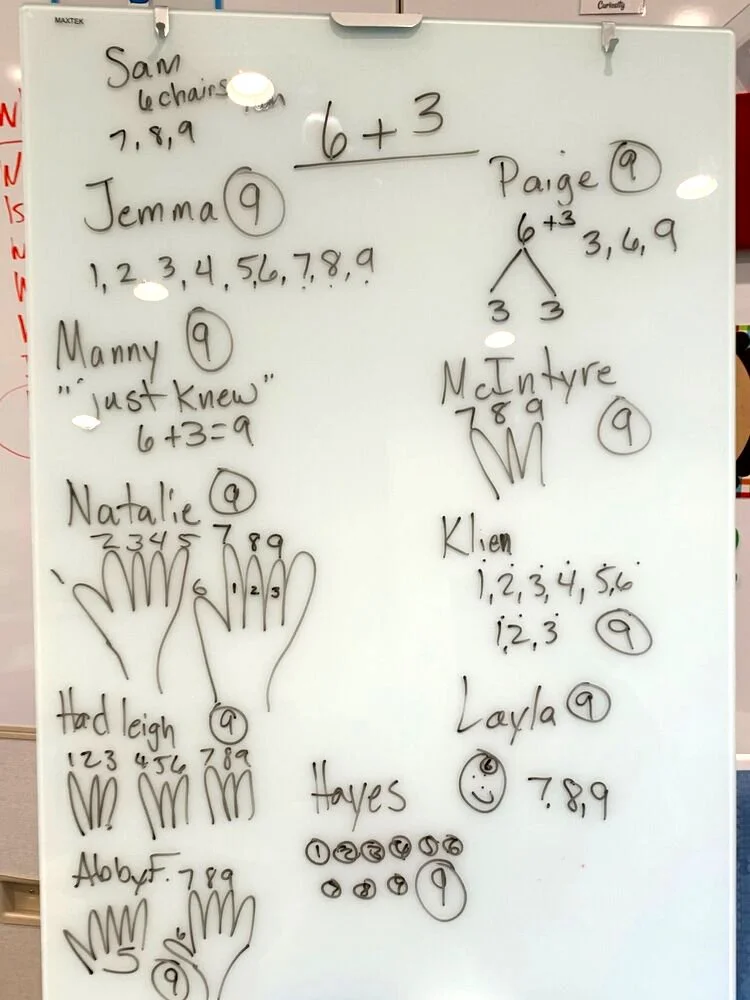 MAXTEK
Curiosity
Sam
6 chairs
7, 8, 9
6 + 3
Jemma 9
1, 2, 3, 4, 5, 6, 7, 8, 9
Manny 9
"just knew"
6 + 3 = 9
Natalie 9
2 3 4 5 7 8 9
6 1 2 3
Hadleigh 9
1 2 3 4 5 6 7 8 9
Abby F. 7 8 9
5 6
9
Paige 9
6 + 3
3, 6, 9
3 3
McIntyre
7 8 9
9
Klien
1, 2, 3, 4, 5, 6
1, 2, 3 9
Layla 9
6 7, 8, 9
Hayes
1 2 3 4 5 6
7 8 9 9